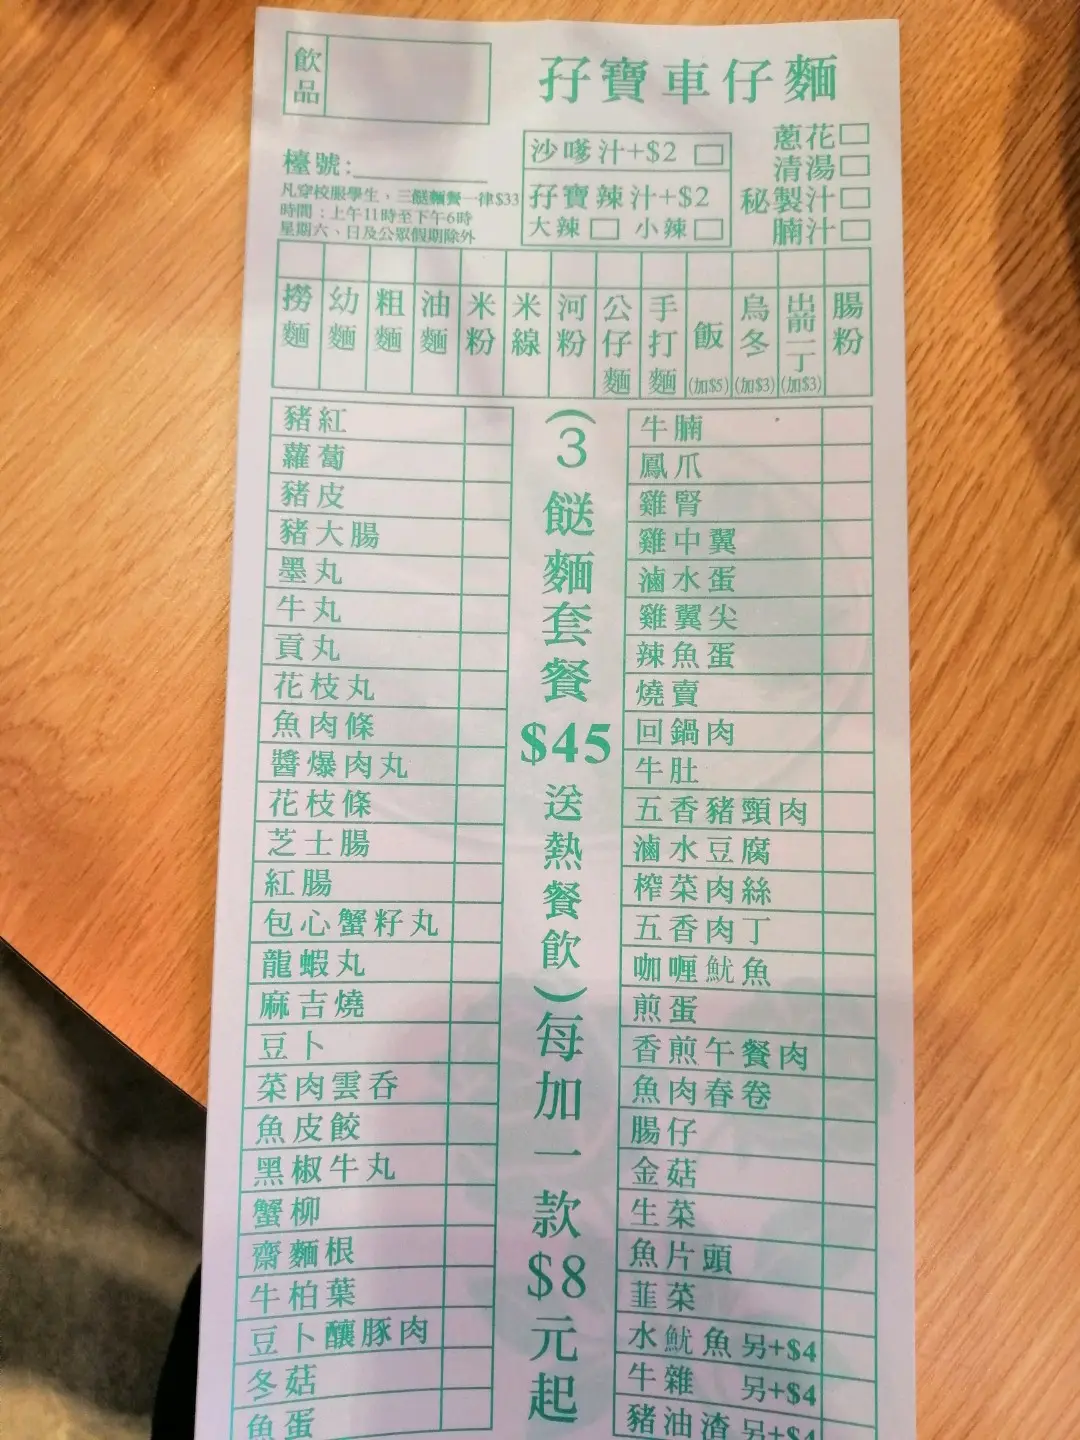 飲品
孖寶車仔麵
檯號:
凡穿校服學生，三餸麵餐一律$33
時間：上午11時至下午6時
星期六、日及公眾假期除外
沙嗲汁+$2
孖寶辣汁+$2
大辣 小辣
蔥花
清湯
秘製汁
腩汁
撈麵
幼麵
粗麵
油麵
米粉
米線
河粉
公仔麵
手打麵
飯(加$5)
烏冬(加$3)
出前一丁(加$3)
腸粉
豬紅
蘿蔔
豬皮
豬大腸
墨丸
牛丸
貢丸
花枝丸
魚肉條
醬爆肉丸
花枝條
芝士腸
紅腸
包心蟹籽丸
龍蝦丸
麻吉燒
豆卜
菜肉雲吞
魚皮餃
黑椒牛丸
蟹柳
齋麵根
牛柏葉
豆卜釀豚肉
冬菇
魚蛋
(3餸麵套餐$45送熱餐飲)每加一款$8元起
牛腩
鳳爪
雞腎
雞中翼
滷水蛋
雞翼尖
辣魚蛋
燒賣
回鍋肉
牛肚
五香豬頸肉
滷水豆腐
榨菜肉絲
五香肉丁
咖喱魷魚
煎蛋
香煎午餐肉
魚肉春卷
腸仔
金菇
生菜
魚片頭
韮菜
水魷魚 另+$4
牛雜 另+$4
豬油渣 另+$4